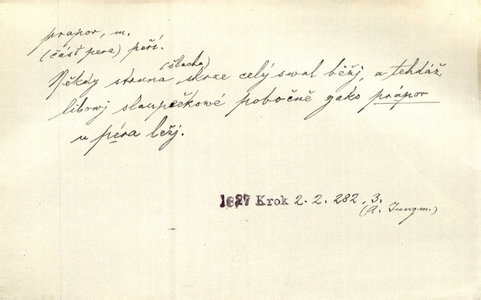 prapor, m.
(část pera) peří.
(šlacha)
Někdy strana skrze celý swal běžj, a tehdáž
libowj sloupečkowé pobočně gako prápor
u péra běžj.
1827 Krok 2.2. 282, 3.
(A. Jungm.)